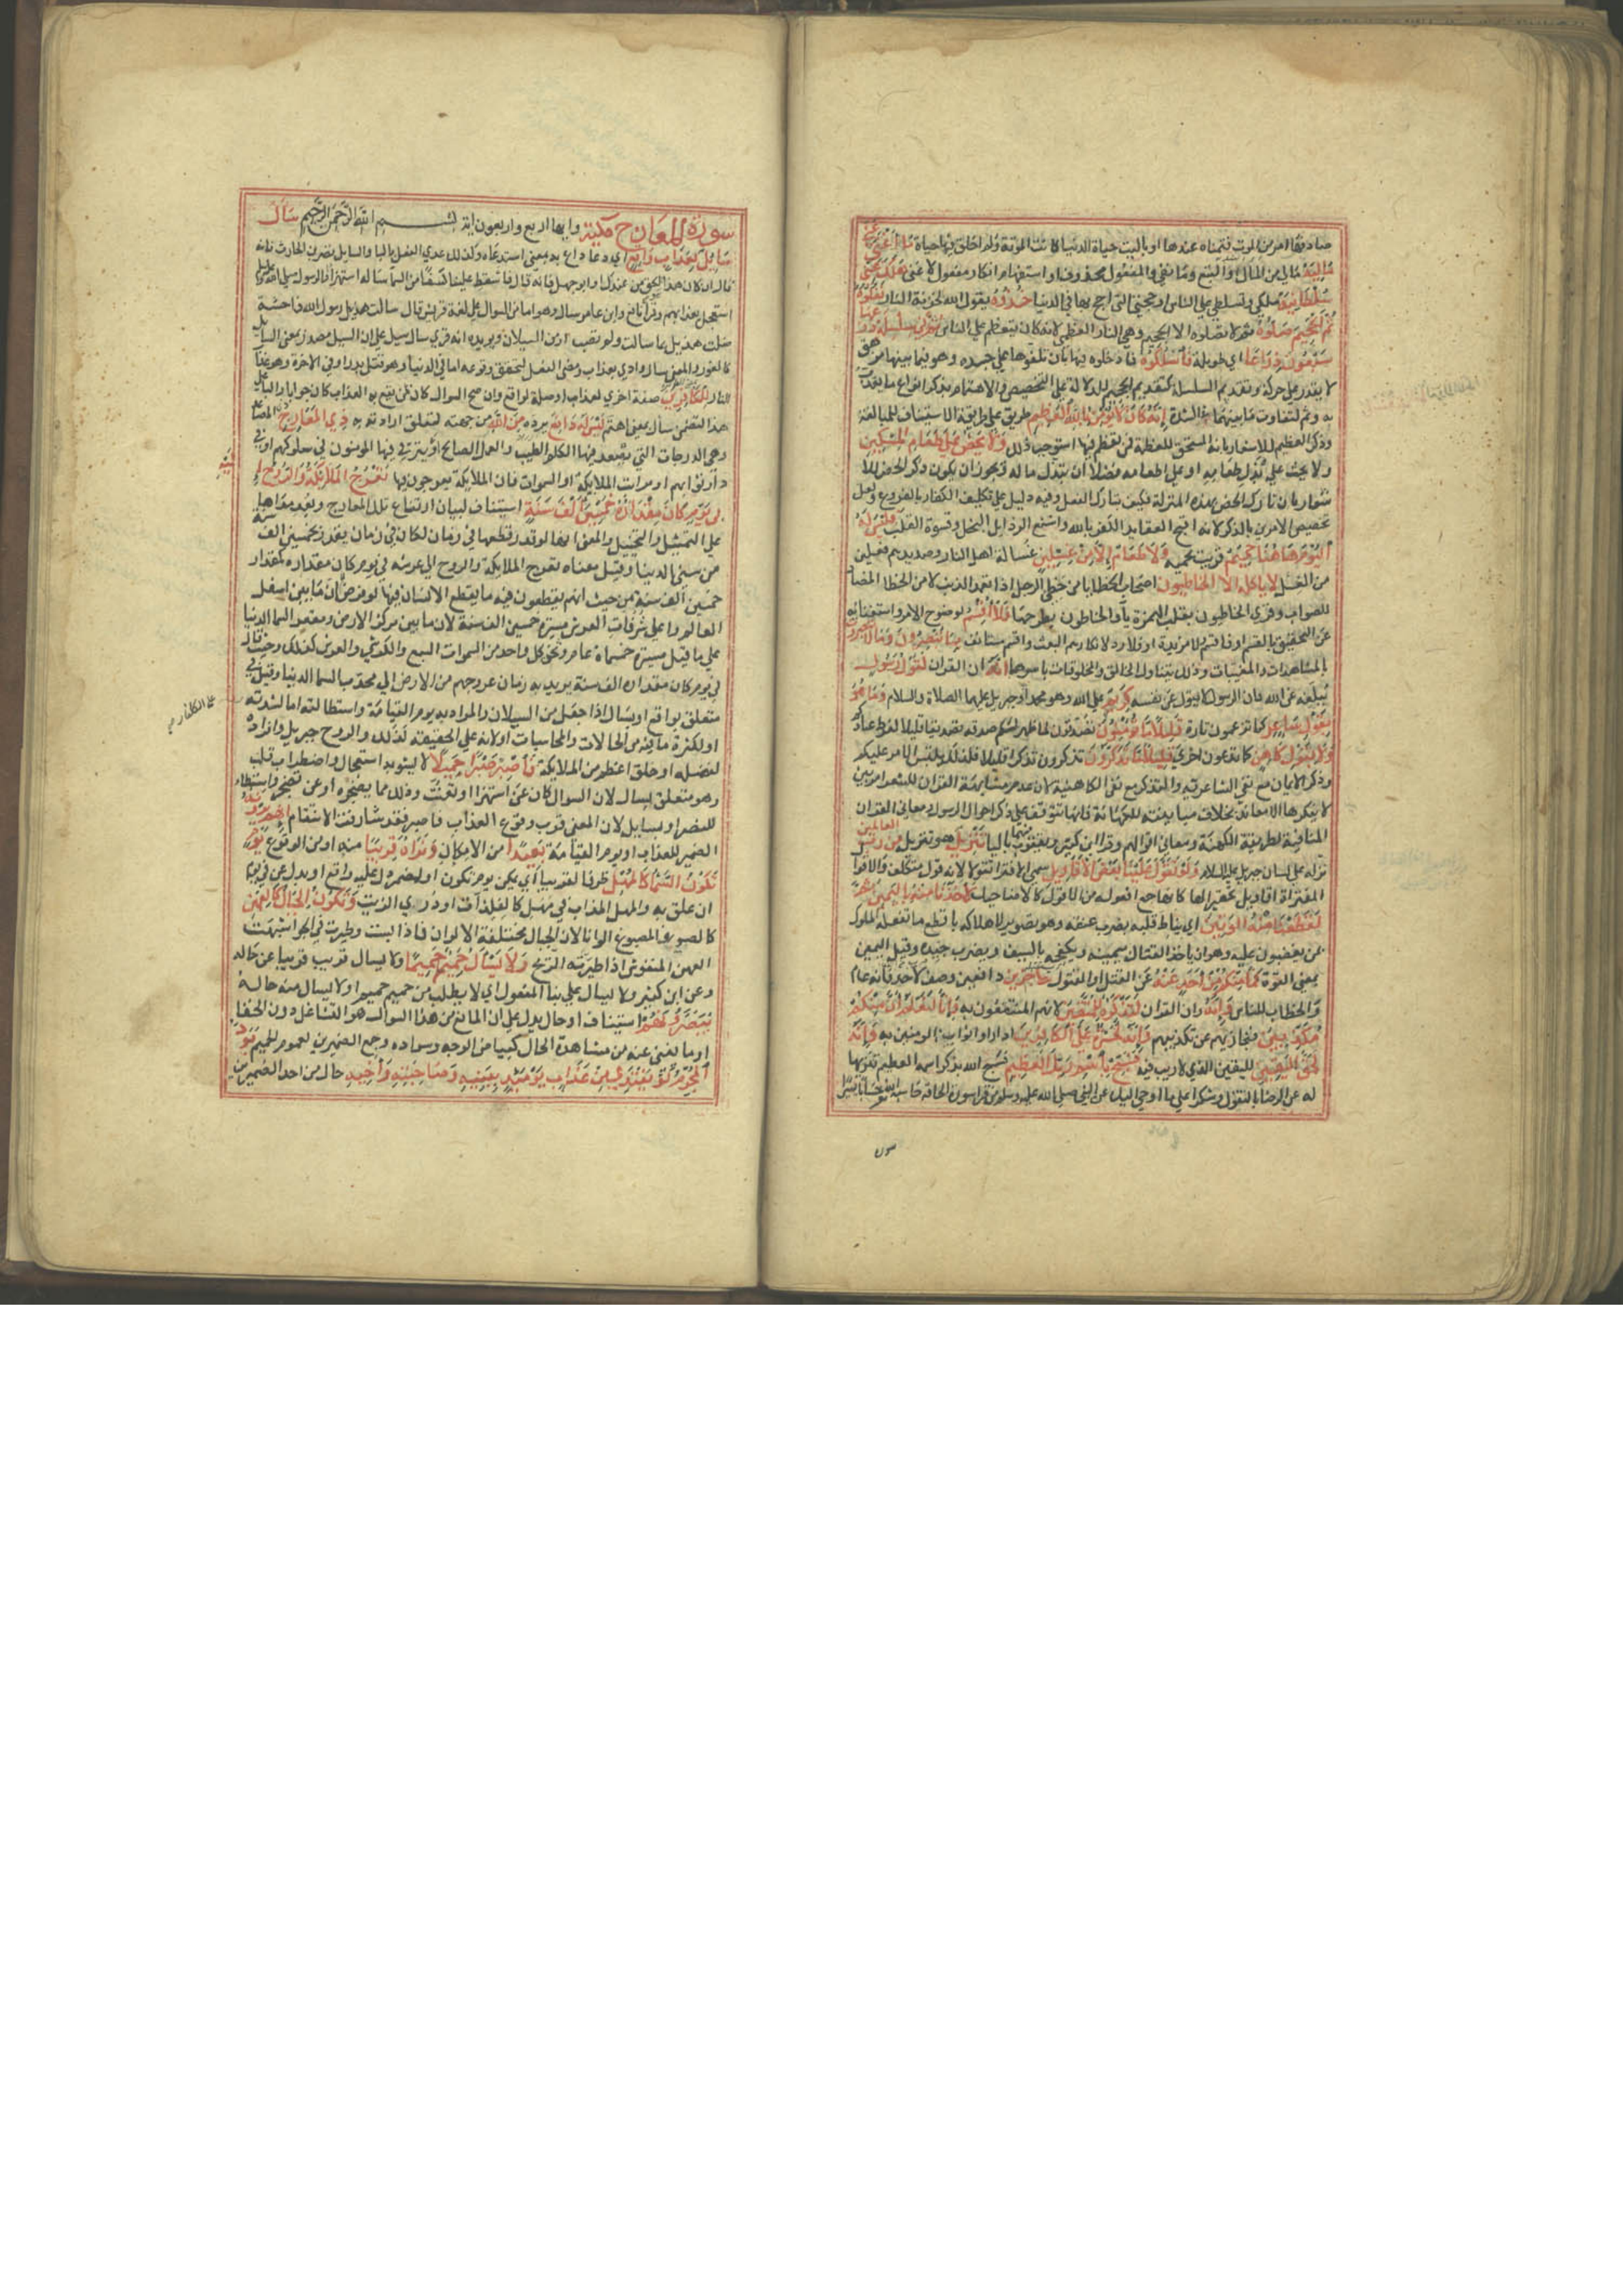 صادفها امر من الموت فتمناه عندها او ياليت حياة الدنيا كانت الموتة ولم اخلق فيها حياة ما اغنى عني
ماليه مالي من المال والتبع وما نفي والمفعول محذوف او استفهام انكار مفعول لاغنى هلك عني
سلطانيه ملكي وتسلطي على الناس او حجتي التي احتج بها في الدنيا خذوه يقول الله لخزنة النار فغلوه
ثم الجحيم صلوه ثم لا تصلوه الا الجحيم وهي النار العظمى لانه كان يتعظم على الناس ثم في سلسلة ذرعها
سبعون ذراعا اي طويلة فاسلكوه فادخلوه فيها بان تلفوها على جسده وهو فيما بينها مرهق
لا يقدر على حركة وتقديم السلسلة كتقديم الجحيم للدلالة على التخصيص والاهتمام بذكر انواع ما يعذب
به وثم لتفاوت ما بينهما في الشدة انه كان لا يؤمن بالله العظيم طريق على طريقة الاستيناف للمبالغة
وذكر العظيم للاشعار بانه المستحق للعظمة فمن تعظم فيها استوجب ذلك ولا يحض على طعام المسكين
ولا يحث على بذل طعامه او على اطعامه فضلا ان يبذل ماله ويجوز ان يكون ذكر الحض للا
شعار بان تارك الحض بهذه المنزلة فكيف بتارك الفعل وفيه دليل على تكليف الكفار بالفروع ولعل
تخصيص الامرين بالذكر لانه اقبح العقايد الكفر بالله واشنع الرذايل البخل وقسوة القلب فليس له
اليوم هاهنا حميم قريب يحميه ولا طعام الا من غسلين غسالة اهل النار وصديدهم فعلين
من الغسل لا ياكله الا الخاطيون اصحاب الخطايا من خطئ الرجل اذا تعمد الذنب لا من الخطا المضاد
للصواب وقرئ الخاطيون بقلب الهمزة ياء والخاطون بطرحها فلا اقسم لوضوح الامر واستغنائه
عن التحقيق بالقسم او فاقسم ولا مزيدة او فلا رد لانكارهم البعث واقسم مستانف بما تبصرون وما لا تبصرون
بالمشاهدات والمغيبات وذلك يتناول الخالق والمخلوقات باسرها انه ان القران لقول رسول
يبلغه عن الله فان الرسول لا يقول عن نفسه كريم على الله وهو محمد او جبريل عليهما الصلاة والسلام وما هو
بقول شاعر كما تزعمون تارة قليلا ما تؤمنون تصدقون لما ظهر لكم صدقه تصديقا قليلا لفرط عنادكم
ولا بقول كاهن كما تدعون اخرى قليلا ما تذكرون تذكرون تذكرا قليلا فلذلك يلتبس الامر عليكم
وذكر الايمان مع نفي الشاعرية والتذكر مع نفي الكاهنية لان عدم مشابهة القران للشعر امر بين
لا ينكرها الا معاند بخلاف مباينته للكهانة فانها تتوقف على تذكر احوال الرسول ومعاني القران
المنافية لطريقة الكهنة ومعاني اقوالهم وقرا ابن كثير ويعقوب بالياء فيهما تنزيل هو تنزيل من رب العالمين
نزله على لسان جبريل عليه السلام ولو تقول علينا بعض الاقاويل سمى الافترا تقولا لانه قول متكلف والاقوال
المفتراة اقاويل تحقيرا لها كانها جمع افعولة من القول كالاضاحيك لاخذنا منه باليمين ثم
لقطعنا منه الوتين اي نياط قلبه بضرب عنقه وهو تصوير لاهلاكه بافظع ما تفعله الملوك
بمن يغضبون عليه وهو ان ياخذ القتال بيمينه ويكفحه بالسيف ويضرب جيده وقيل اليمين
بمعنى القوة فما منكم من احد عنه عن القتل او المقتول حاجزين دافعين وصف لاحد فانه عام
والخطاب للناس وانه وان القران لتذكرة للمتقين لانهم المنتفعون به وانا لنعلم ان منكم
مكذبين فنجازيهم عن تكذيبهم وانه لحسرة على الكافرين اذا راوا ثواب المومنين به وانه
لحق اليقين لليقين الذي لا ريب فيه فسبح باسم ربك العظيم فسبح الله بذكر اسمه العظيم تنزيها
له عن الرضا بالتقول وشكرا على ما اوحى اليك عن النبي صلى الله عليه وسلم من قرا سورة الحاقة حاسبه الله حسابا يسيرا
سورة
سورة المعارج مكية وايها اربع واربعون اية بسم الله الرحمن الرحيم سأل
سايل بعذاب واقع اي دعا داع به بمعنى استدعاه ولذلك عدي الفعل بالبا والسايل نضر بن الحارث فانه
قال ان كان هذا هو الحق من عندك او ابو جهل فانه قال فاسقط علينا كسفا من السما ساله استهزاء او الرسول صلى الله عليه وسلم
استعجل بعذابهم وقرا نافع وابن عامر سال وهو اما من السوال على لغة قريش قال سالت هذيل رسول الله فاحشة
ضلت هذيل بما سالت ولم تصب او من السيلان ويويده انه قرئ سال سيل على ان السيل مصدر بمعنى السايل
كالغور والمعنى سال وادي بعذاب ومضى الفعل لتحقق وقوعه اما في الدنيا وهو قتل بدر او في الاخرة وهو عذاب
النار للكافرين صفة اخرى لعذاب او صلة لواقع وان صح السوال كان عمن يقع به العذاب كان جوابا والبا على
هذا لتضمن سأل معنى اهتم ليس له دافع يرده من الله من جهته لتعلق ارادته به ذي المعارج ذي المصاعد
وهي الدرجات التي يصعد فيها الكلم الطيب والعمل الصالح او يترقى فيها المومنون في سلوكهم او في
دار ثوابهم او مراتب الملايكة او السموات فان الملايكة يعرجون فيها تعرج الملايكة والروح اليه
في يوم كان مقداره خمسين الف سنة استيناف لبيان ارتفاع تلك المعارج وبعد مداها
على التمثيل والتخييل والمعنى انها لو قدر قطعها في زمان لكان في زمان يقدر بخمسين الف سنة
من سني الدنيا وقيل معناه تعرج الملايكة والروح الى عرشه في يوم كان مقداره كمقدار
خمسين الف سنة من حيث انهم يقطعون فيه ما يقطع الانسان فيها لو فرض لان ما بين اسفل
العالم واعلى شرفات العرش مسيرة خمسين الف سنة لان ما بين مركز الارض ومقعر السما الدنيا
على ما قيل مسيرة خمسماة عام وثخن كل واحد من السموات السبع والكرسي والعرش كذلك وحيث قال
في يوم كان مقداره الف سنة يريد به زمان عروجهم من الارض الى محدب السما الدنيا وقيل في
متعلق بواقع او بسال اذا جعل من السيلان والمراد به يوم القيامة واستطالته اما لشدته
على الكفار
او لكثرة ما فيه من الحالات والمحاسبات او لانه على الحقيقة كذلك والروح جبريل وافراده
لفضله او خلق اعظم من الملايكة فاصبر صبرا جميلا لا يشوبه استعجال واضطراب قلب
وهو متعلق بسال لان السوال كان عن استهزا او تعنت وذلك مما يضجره او عن تضجر واستبطاء
للنصر او بسايل لان المعنى قرب وقوع العذاب فاصبر فقد شارفت الانتقام انهم يرونه
الضمير للعذاب او يوم القيامة بعيدا من الامكان ونراه قريبا منه او من الوقوع يوم
تكون السماء كالمهل ظرف لقريبا اي يمكن يوم تكون او لمضمر دل عليه واقع او بدل عن في يوم
ان علق به والمهل المذاب في مهل كالفلذات او دردي الزيت وتكون الجبال كالعهن
كالصوف المصبوغ الوانا لان الجبال مختلفة الالوان فاذا بست وطيرت في الجو اشبهت
العهن المنفوش اذا طيرته الريح ولا يسأل حميم حميما ولا يسال قريب قريبا عن حاله
وعن ابن كثير ولا يسال على بنا المفعول اي لا يطلب من حميم حميم او لا يسال منه حاله
يبصرونهم استيناف او حال يدل على ان المانع من هذا السوال هو التشاغل دون الخفا
او ما يغني عنه من مشاهدة الحال كبياض الوجه وسواده وجمع الضميرين لعموم الحميم يود
المجرم لو يفتدي من عذاب يومئذ ببنيه وصاحبته واخيه حال من احد الضميرين